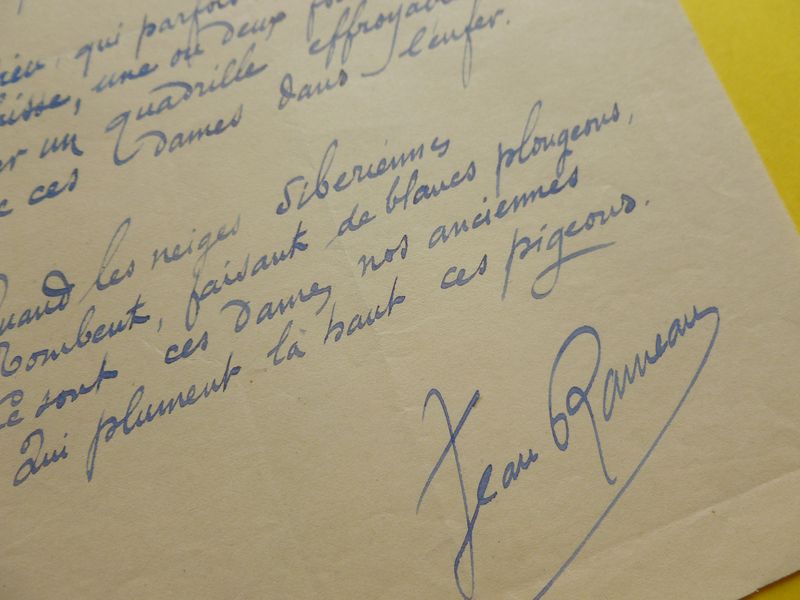 qui parfois
une ou deux
un quadrille effroyable
ces Dames dans l'enfer.
Quand les neiges Siberiennes
Tombent, faisant de blancs plongeons,
Ce sont ces Dames, nos anciennes
Qui plument là haut ces pigeons.
Jean Rameau